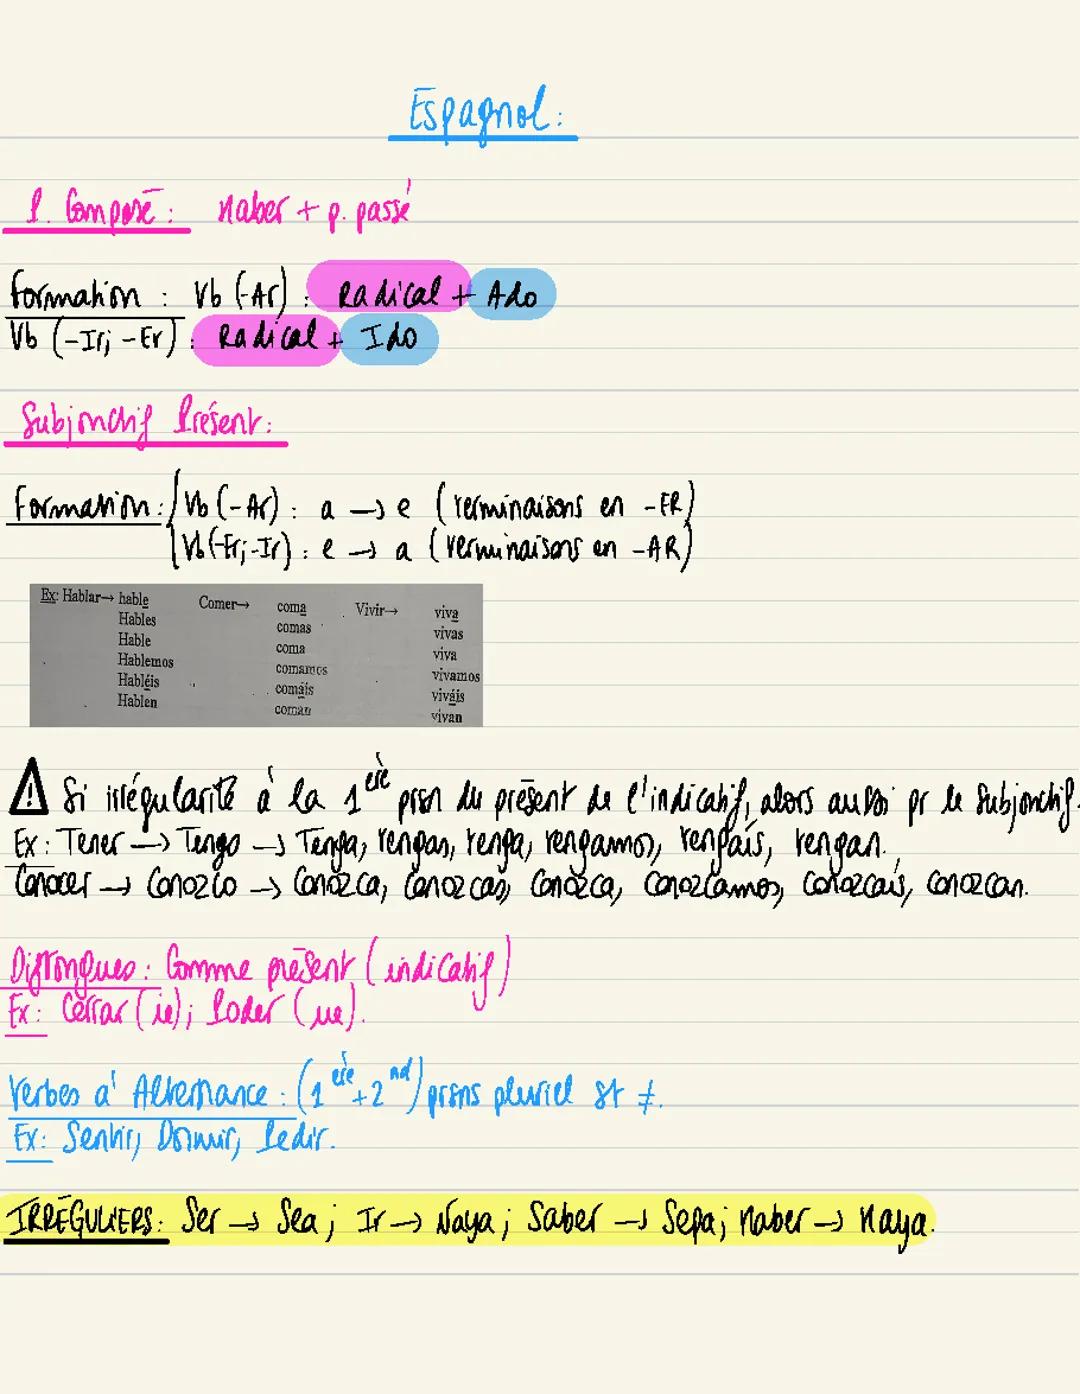 Espagnol:
P. Composé: Haber + p. passé
Formation : Vb (-Ar) : Radical + Ado
Vb (-Ir; -Er) : Radical + Ido
Subjonctif Présent:
Formation: Vb (-Ar) : a → e (terminaisons en -ER)
Vb (-Er; -Ir) : e → a (terminaisons en -AR)
Ex: Hablar→ hable Comer→ coma Vivir→ viva
Hables comas vivas
Hable coma viva
Hablemos comamos vivamos
Habléis comáis viváis
Hablen coman vivan
⚠ Si irrégularité à la 1ère prsn du présent de l'indicatif, alors aussi pr le Subjonctif.
Ex: Tener → Tengo → Tenga, tengas, tenga, tengamos, tengáis, tengan.
Conocer → Conozco → Conozca, Conozcas, Conozca, Conozcamos, conozcáis, conozcan.
Diftongues: Comme présent (indicatif)
Ex: Cerrar (ie); Poder (ue).
Verbes à Alternance: (1ère + 2nd) prsns pluriel st ≠.
Ex: Sentir, Dormir, Pedir.
IRRÉGULIERS: Ser → Sea; Ir → Vaya; Saber → Sepa; Haber → Haya.